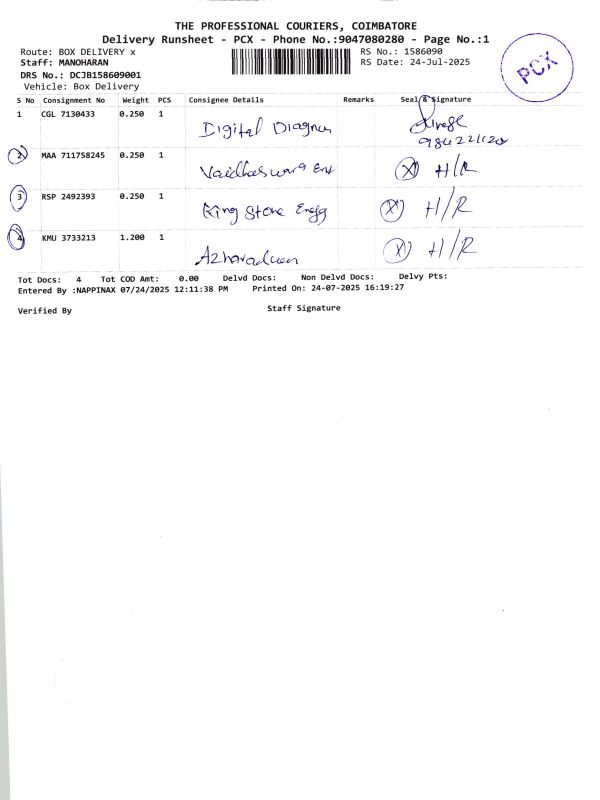 THE PROFESSIONAL COURIERS, COIMBATORE
Delivery Runsheet - PCX - Phone No.:9047080280 - Page No.:1
Route: BOX DELIVERY x
RS No.: 1586090
Staff: MANOHARAN
RS Date: 24-Jul-2025
DRS No.: DCJB158609001
Vehicle: Box Delivery
PCX
S No Consignment No Weight PCS Consignee Details Remarks Seal & Signature
1 CGL 7130433 0.250 1 Digital Diagnos
2 MAA 711758245 0.250 1 Vaidhaswara Ent (X) H/R
3 RSP 2492393 0.250 1 King Stone Engg (X) H/R
4 KMU 3733213 1.200 1 (X) H/R
Tot Docs: 4 Tot COD Amt: 0.00 Delvd Docs: Non Delvd Docs: Delvy Pts:
Entered By :NAPPINAX 07/24/2025 12:11:38 PM Printed On: 24-07-2025 16:19:27
Verified By Staff Signature